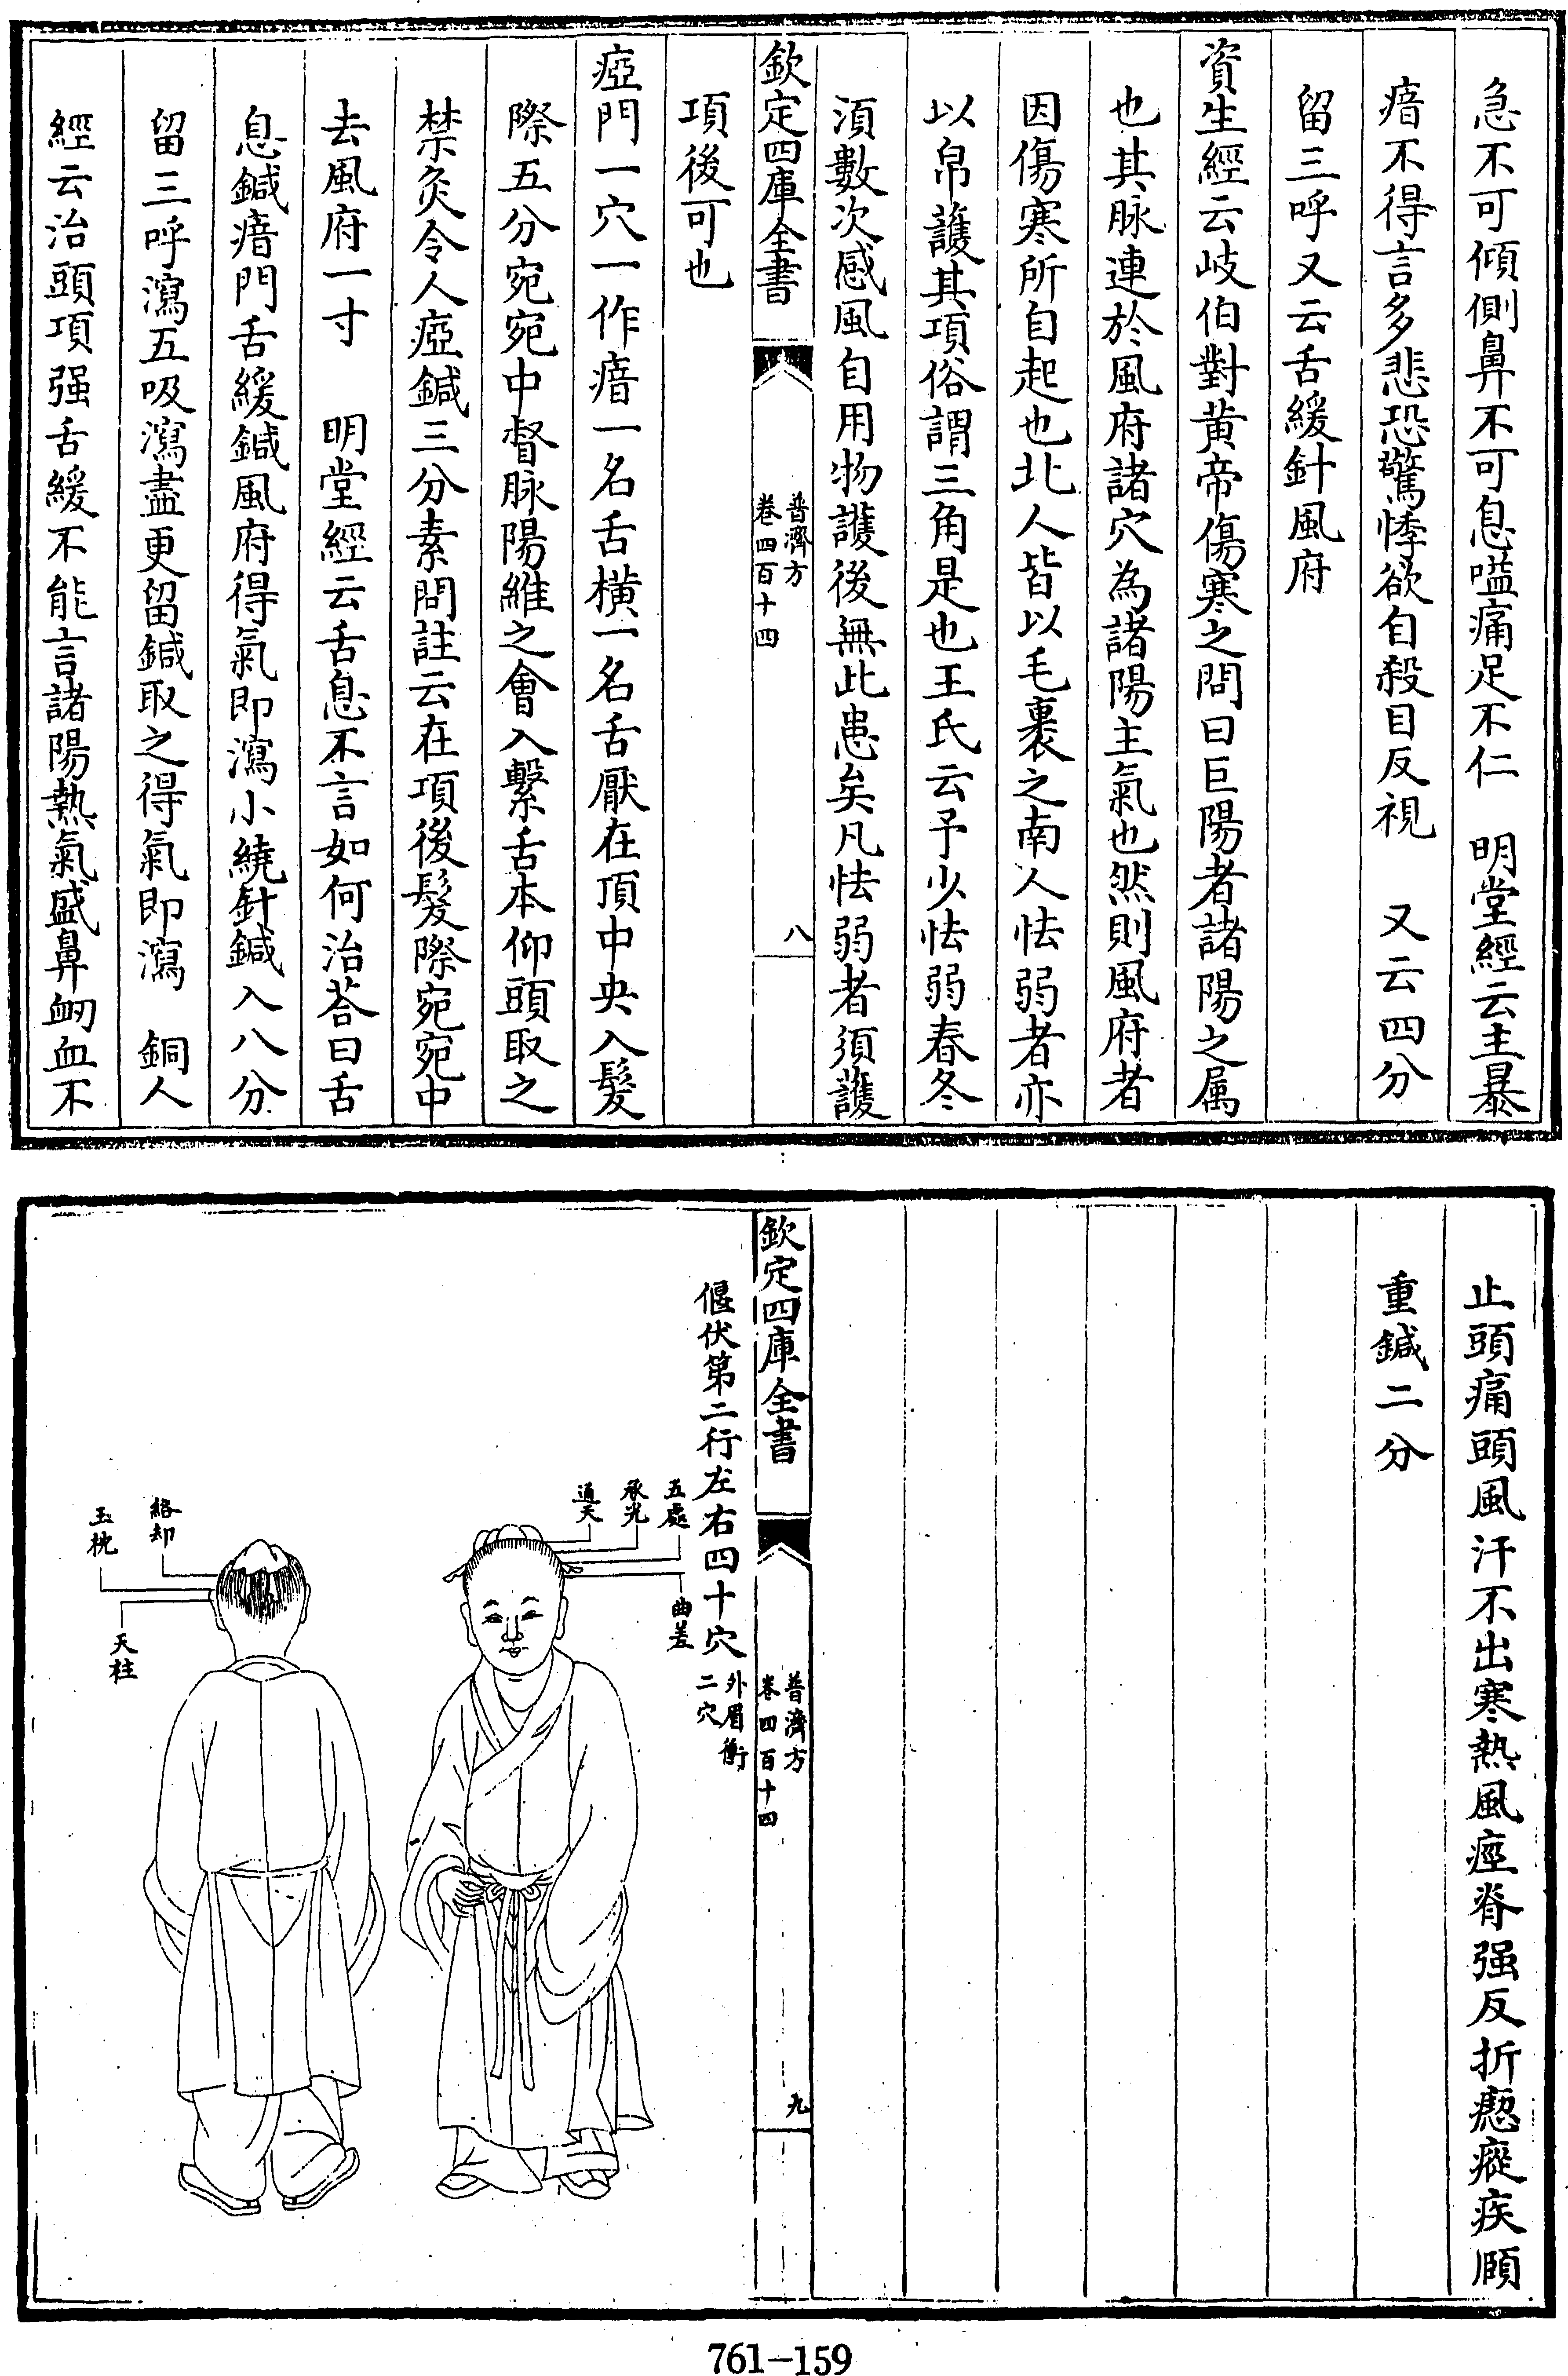 急不可傾側鼻不可息嗌痛足不仁　明堂經云主暴
瘖不得言多悲恐驚悸欲自殺目反視　又云四分
留三呼又云舌緩針風府
資生經云岐伯對黄帝傷寒之問曰巨陽者諸陽之属
也其脉連於風府諸穴為諸陽主氣也然則風府者
因傷寒所自起也北人皆以毛裹之南人怯弱者亦
以帛護其項俗謂三角是也王氏云予少怯弱春冬
須數次感風自用物護後無此患矣凡怯弱者須護
欽定四庫全書
普濟方
卷四百十四
八
項後可也
瘂門一穴一作瘖一名舌橫一名舌厭在頂中央入髮
際五分宛宛中督脉陽維之會入繫舌本仰頭取之
禁灸令人瘂鍼三分素問註云在項後髮際宛宛中
去風府一寸　明堂經云舌息不言如何治荅曰舌
息鍼瘖門舌緩鍼風府得氣即瀉小繞針鍼入八分
留三呼瀉五吸瀉盡更留鍼取之得氣即瀉　銅人
經云治頭項强舌緩不能言諸陽熱氣盛鼻衂血不
止頭痛頭風汗不出寒熱風痙脊强反折瘛瘲疾頭
重鍼二分
欽定四庫全書
普濟方
卷四百十四
九
偃伏第二行左右四十穴
外眉衝
二穴
五處
承光
通天
曲差
絡却
玉枕
天柱
761-159